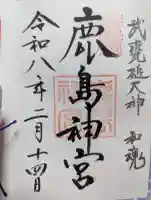 武甕槌大神 和魂
鹿島神宮
令和八年二月十四日